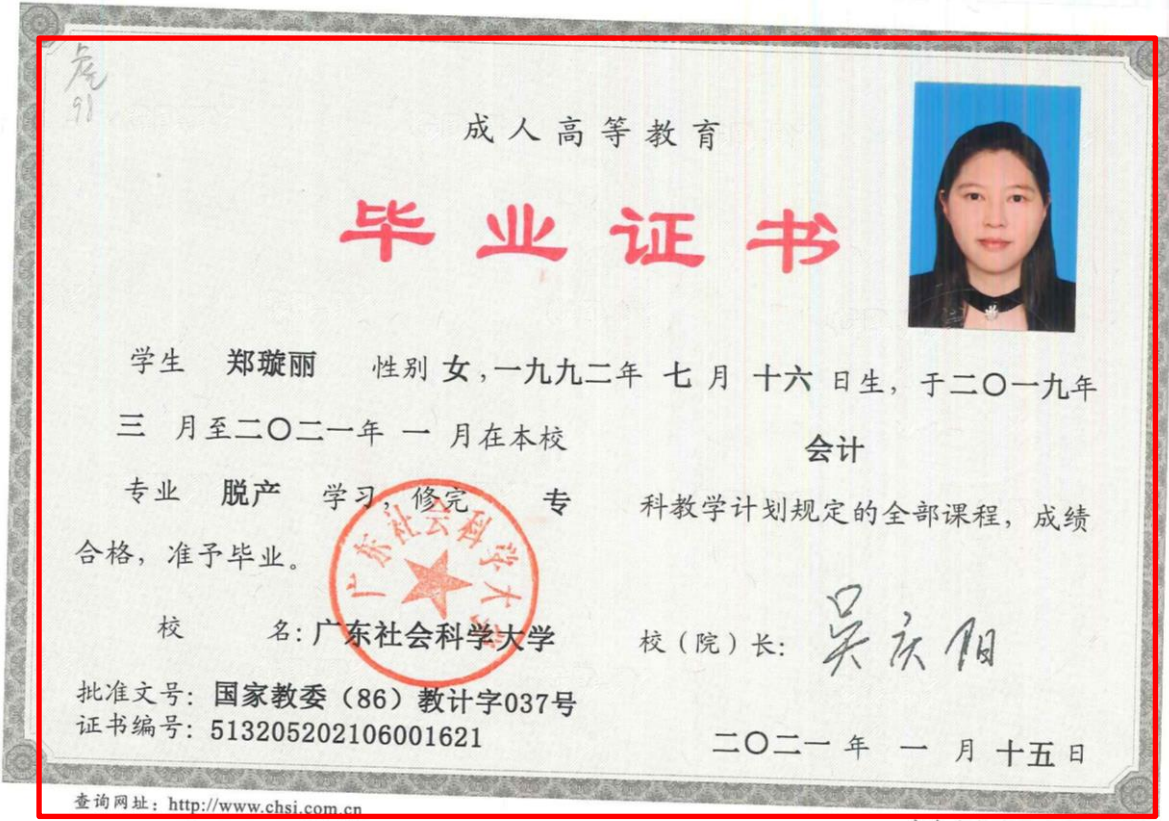 虎
91
成人高等教育
毕业证书
学生 郑璇丽 性别 女,一九九二年 七 月 十六 日生, 于二〇一九年
三 月至二〇二一年 一 月在本校 会计
专业 脱产 学习, 修完 专 科教学计划规定的全部课程, 成绩
合格, 准予毕业。
广东社会科学大学
校 名: 广东社会科学大学 校(院)长: 吴庆阳
批准文号: 国家教委(86)教计字037号
证书编号: 513205202106001621 二〇二一 年 一 月 十五 日
查询网址: http://www.chsi.com.cn